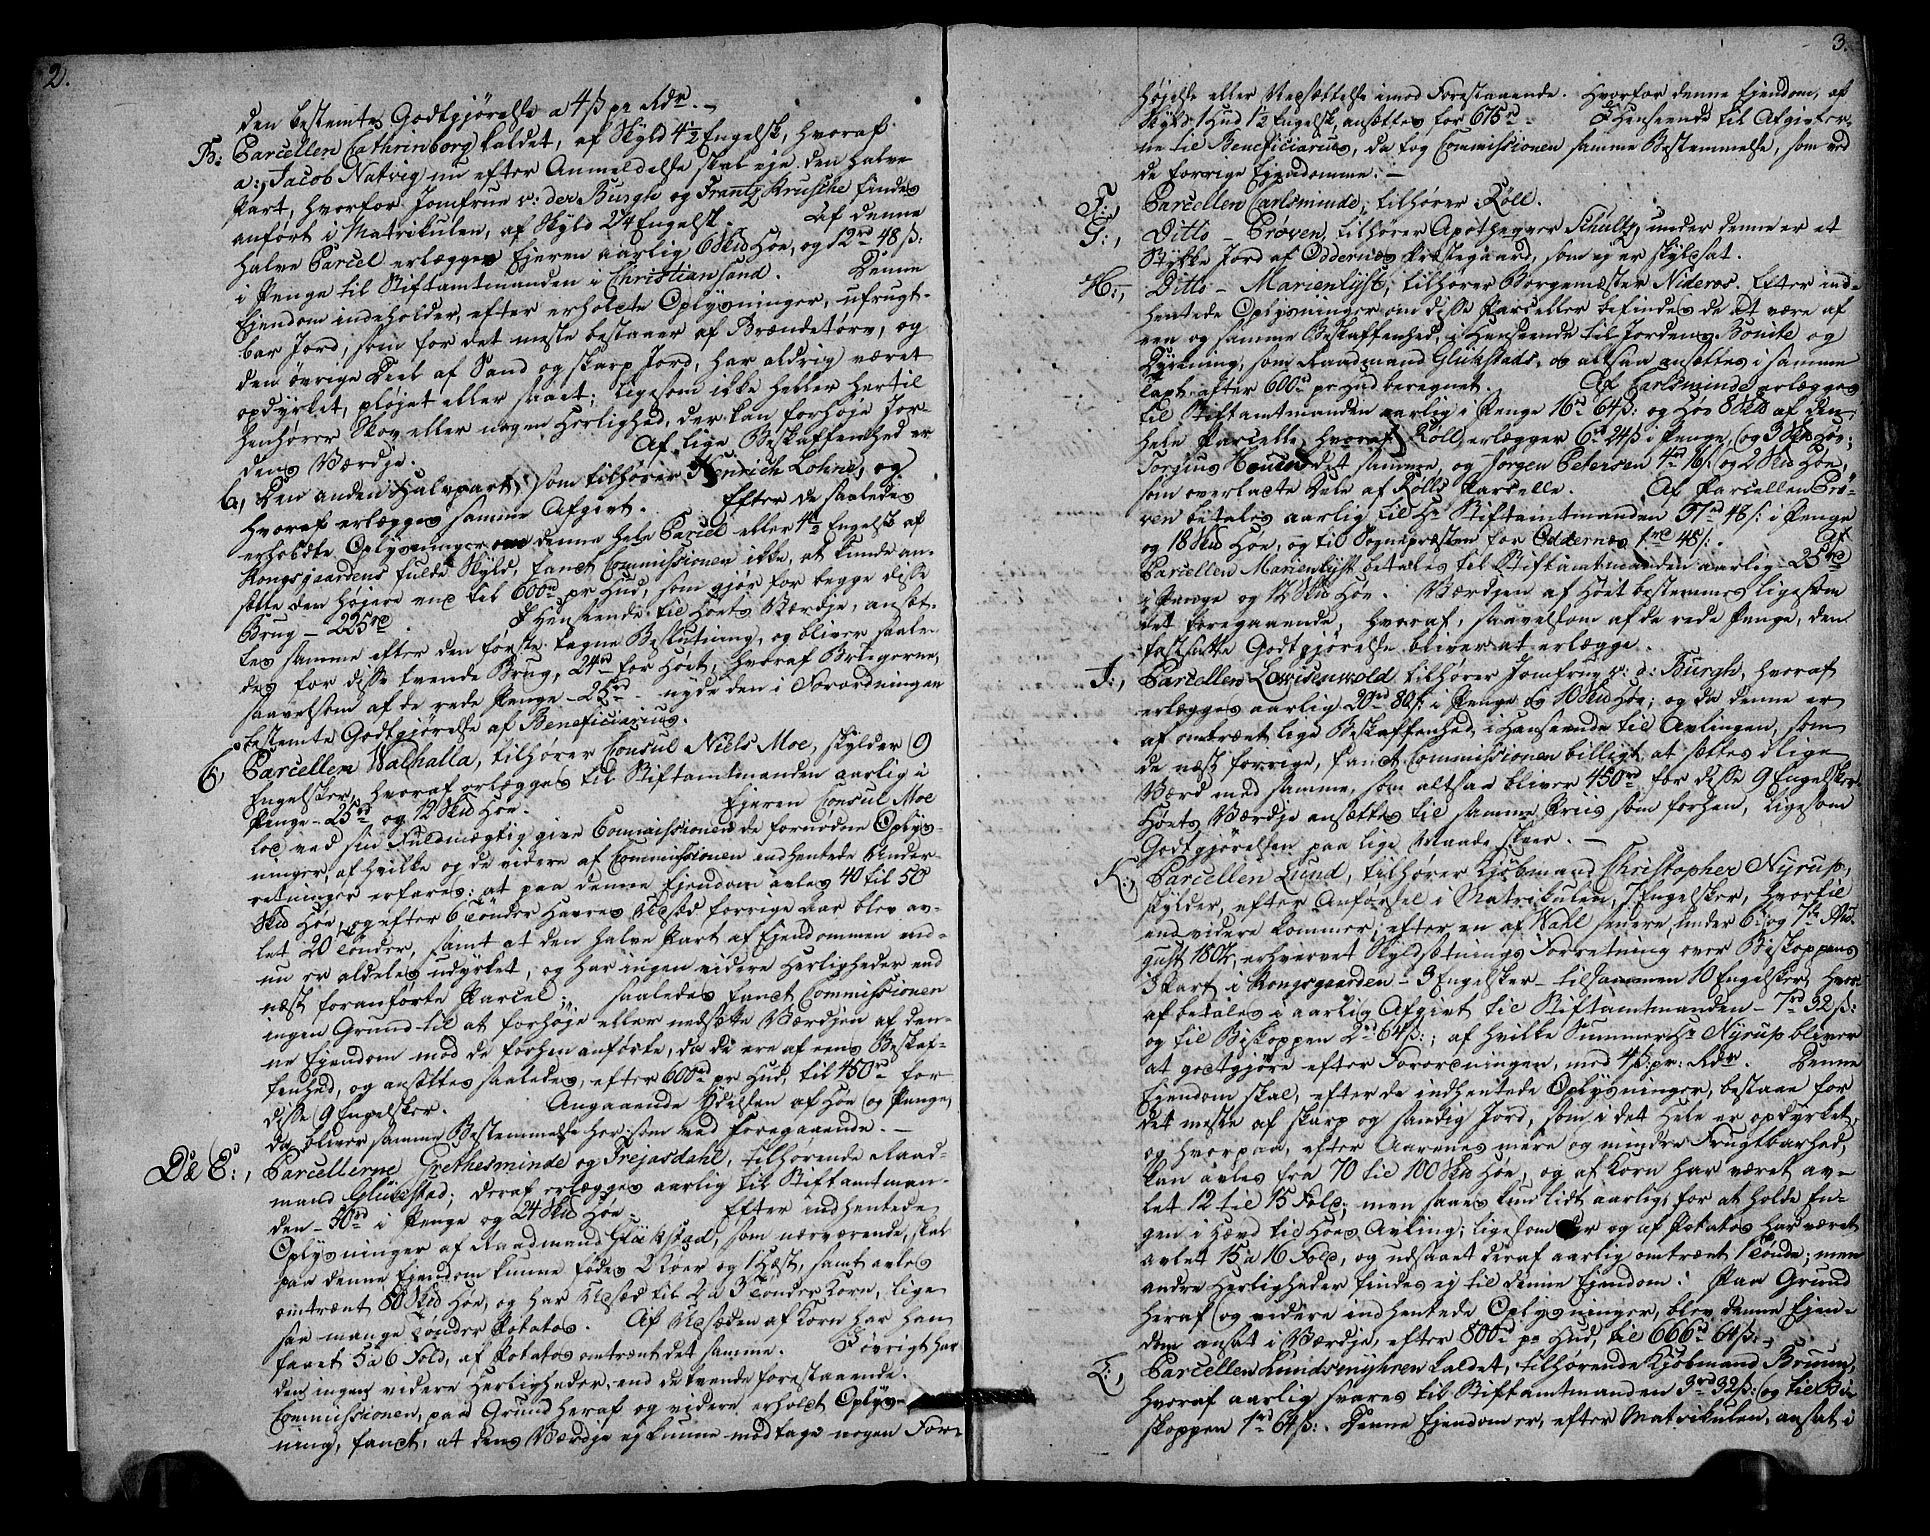 2.
den bestemte Godtgjörelse a 4 ß pr Rdr. –
B: Parcellen Cathrinborg kaldet, af Skyld 4½ Engelsk, hvoraf
a:, Jacob Natvig nu efter Anmeldelse skal eje den halve
Part, hvorfor Jomfrue v: der Burgh og Frantz Krusche findes
anfört i Matrikulen, af Skyld 2¼ Engelsk. Af denne
halve Parcel erlægges Ejeren aarlig 6 Skd Höe, og 12 rd 48 ß:
i Penge til Stiftamtmanden i Christiansand. Denne
Ejendom indeholder, efter erholdte Oplysninger, ufrugt-
bar Jord, som for det meste bestaaer af Brændetörv, og
den övrige Deel af Sand og skarp Jord, har aldrig været
opdyrket, pløjet eller saaet; ligesom ikke heller hertil
henhörer Skov eller nogen Herlighed, der kan forhöje Jor-
dens Værdje. Af lige Beskaffenhed er
b, Den anden Halvpart, som tilhörer Henrich Lohne, og
hvoraf erlægges samme Afgivt. Efter de saaledes
erholdte Oplysninger om denne hele Parcel eller 4½ Engelsk af
Kongsgaardens fulde Skyld, fandt Commissionen ikke, at kunde an-
sætte den höjere end til 600 rd pr Hud, som gjör for begge disse
Brug – 225 rd. I Henseende til Höets Værdje, ansæt-
tes samme efter den förste tagne Beslutning, og bliver saale-
des for disse tvende Brug, 24 rd for Höet, hvoraf Brugerne,
saavelsom af de rede Penge – 25 rd – nyde den i Forordningen
bestemte Godtgjörelse af Beneficiarius.
C, Parcellen Walhalla, tilhörer Consul Niels Moe, skylder 9
Engelsker, hvoraf erlægges til Stiftamtmanden aarlig i
Penge – 25 rd og 12 Skd Höe. Ejeren Consul Moe
lod ved sin Fuldmægtig give Commissionen de fornödne Oplys-
ninger, af hvilke og de videre af Commissionen indhentede Under-
retninger erfares: at paa denne Ejendom avles 40 til 50
Skd Höe, og efter 6 Tönder Havres Udsæd forrige Aar blev av-
let 20 Tönder, samt at den halve Part af Ejendommen end-
nu er aldeles udyrket, og har ingen videre Herligheder end
næst foranförte Parcel; saaledes fandt Commissionen
ingen Grund til at forhöje eller nedsætte Værdjen af den-
ne Ejendom mod de forhen anförte, da de ere af eens Beskaf-
fenhed, og ansættes saaledes, efter 600 rd pr Hud, til 450 rd for
disse 9 Engelsker. Angaaende Ydelsen af Höe og Penge,
da bliver samme Bestemmelse her som ved Foregaaende. –
D & E:, Parcellerne Grethesminde og Frejasdahl, tilhörende Raad-
mand Glückstad; deraf erlægges aarlig til Stiftamtman-
den – 50 rd i Penge og 24 Skd Höe. Efter indhentede
Oplysninger af Raadmand Glückstad, som nærværende, skal
paa denne Ejendom kunne födes 2 Köer og 1 Hæst, samt avles
omtrent 80 Skd Höe, og har Udsæd til 2 a 3 Tönder Korn, lige
saa mange Tönder Potatos. Af Udsæden af Korn har han
faaet 5 a 6 Fold, af Potatos omtrent det samme. I övrigt har
den ingen videre Herligheder, end de tvende forestaaende.
Commissionen, paa Grund heraf og videre erholdt Oplys-
ning, fandt, at dens Værdje ej kunne modtage nogen For-
3.
höjelse eller Nedsættelse imod Forestaaende. Hvorfor denne Ejendom, af
Skyld 1 Hud 1½ Engelsk ansættes for 675 rd. I Henseende til Afgivter-
ne til Beneficiarius, da tog Commissionen samme Bestemmelse, som ved
de forrige Ejendomme. –
F:, Parcellen Carlsminde, tilhörer Röll.
G:, Ditto – Pröven, tilhörer Apotheqer Schultz, under denne er et
Stykke Jord af Oddernæs Præstegaard, som ej er skyldsat.
H:, Ditto – Marienlyst, tilhörer Borgemæster Nideros. Efter ind-
hentede Oplysninger om disse Parceller befindes de at være af
een og samme Beskaffenhed, i Henseende til Jordens Bonite og
Dyrkning, som Raadmand Glückstads, og altsaa ansættes i samme
Taxt efter 600 rd pr Hud beregnet. Af Carlsminde erlægges
til Stiftamtmanden aarlig i Penge 16 rd 64 ß: og Höe 8 Skd af den
hele Parcelle, hvoraf Röll erlægger 6 rd 24 ß i Penge, og 3 Skd Höe;
Torgius Knuds det samme, og Jörgen Petersen 4 rd 16 ß: og 2 Skd Höe,
som overladte Dele af Rölls Parcelle. Af Parcellen Prö-
ven betales aarlig til Hr Stiftamtmanden 37 rd 48 ß: i Penge
og 18 Skd Höe, og til Sognepræsten for Oddernæs 1 rd 48 ß:. Af
Parcellen Marienlyst betales til Stiftamtmanden aarlig – 25 rd
i Penge og 12 Skd Höe. Værdjen af Höet bestemmes ligesom
det foregaaende, hvoraf, saavelsom af de rede Penge, den
fastsatte Godtgjörelse bliver at erlægge.
I:, Parcellen Lowisenwold tilhörer Jomfrue v: d: Burgh, hvoraf
erlægges aarlig 20 rd 80 ß: i Penge og 10 Skd Höe; og da denne er
af omtrent lige Beskaffenhed, i Henseende til Avlingen, som
de næst forrige, fandt Commissionen billigt at sættes i lige
Værd med samme, som altsaa bliver 450 rd for disse 9 Engelsker.
Höets Værdje ansættes til samme Priis som forhen, ligesom
Godtgjörelsen paa lige Maade skeer. –
K:, Parcellen Lund, tilhörer Kjöbmand Christopher Nyrup,
skylder, efter Anförsel i Matrikulen, 7 Engelsker, hvortil
end videre kommer, efter en af Wahl senere, under 6: og 7de Au-
gust 1802, erhvervet Skyldsætnings Forretning over Biskoppens
3 Part i Kongsgaarden – 3 Engelsker – tilsammen 10 Engelsker, hvor-
af betales i aarlig Afgivt til Stiftamtmanden – 7 rd 32 ß:
og til Biskoppen 2 rd 64 ß:; af hvilke Summer Hr Nyrup bliver
at godtgjöre efter Forordningen, med 4 ß: pr: Rdr. Denne
Ejendom skal, efter de indhentede Oplysninger, bestaae for
det meste af skarp og sandig Jord, som i det Hele er opdyrket,
og hvorpaa, efter Aarenes mere og mindre Frugtbarhed,
kan avles fra 70 til 100 Skd Höe, og af Korn har været av-
let 12 til 15 Fold; men saaes kun lidt aarlig, for at holde En-
gen i Hævd til Höes Avling; ligesom der og af Potatos har været
avlet 15 a 16 Fold, og udsaaet deraf aarlig omtrent 1 Tönde; men
andre Herligheder findes ej til denne Ejendom. Paa Grund
heraf og videre indhentede Oplysninger, blev denne Ejen-
dom ansat i Værdje, efter 800 rd pr Hud, til 666 rd 64 ß: –
L:, Parcellen Lundsmyhren kaldet, tilhörende Kjöbmand Bruun,
hvoraf aarlig svares til Stiftamtmanden 3 rd 32 ß: og til Bi-
skoppen 1 rd 64 ß:. Denne Ejendom er, efter Matrikulen, ansat i